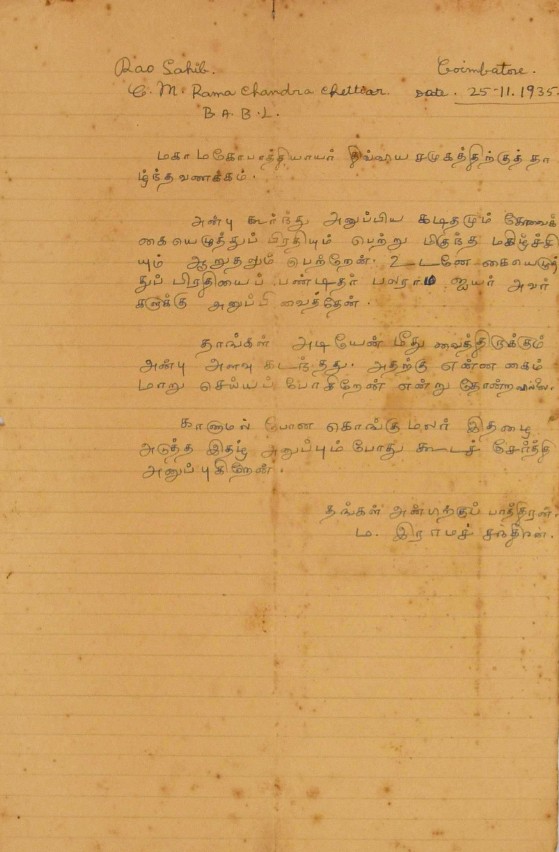 Rao Sahib. Coimbatore.
C. M. Rama Chandra Chettiar. Date. 25-11.1935.
B. A. B. L.
மகா மகோபாத்தியாயர் திவ்விய சமுகத்திற்குத் தா
ழ்ந்த வணக்கம்.
அன்பு கூர்ந்து அனுப்பிய கடிதமும்
கையெழுத்துப் பிரதியும் பெற்று மிகுந்த மகிழ்ச்சி
யும் ஆறுதலும் பெற்றேன். உடனே கையெழுத்
துப் பிரதியைப் பண்டிதர் பலராம ஐயர் அவர்
களுக்கு அனுப்பி வைத்தேன்.
தாங்கள் அடியேன் மீது வைத்திருக்கும்
அன்பு அளவு கடந்தது. அதற்கு என்ன கைம்
மாறு செய்யப் போகிறேன் என்று தோன்றவில்லை.
காணாமல் போன கொங்கு மலர் இதழை
அடுத்த இதழ் அனுப்பும் போது கூடச் சேர்த்தி
அனுப்புகிறேன்.
தங்கள் அன்பிற்குப் பாத்திரன்.
ம. இராமச் சந்திரன்.